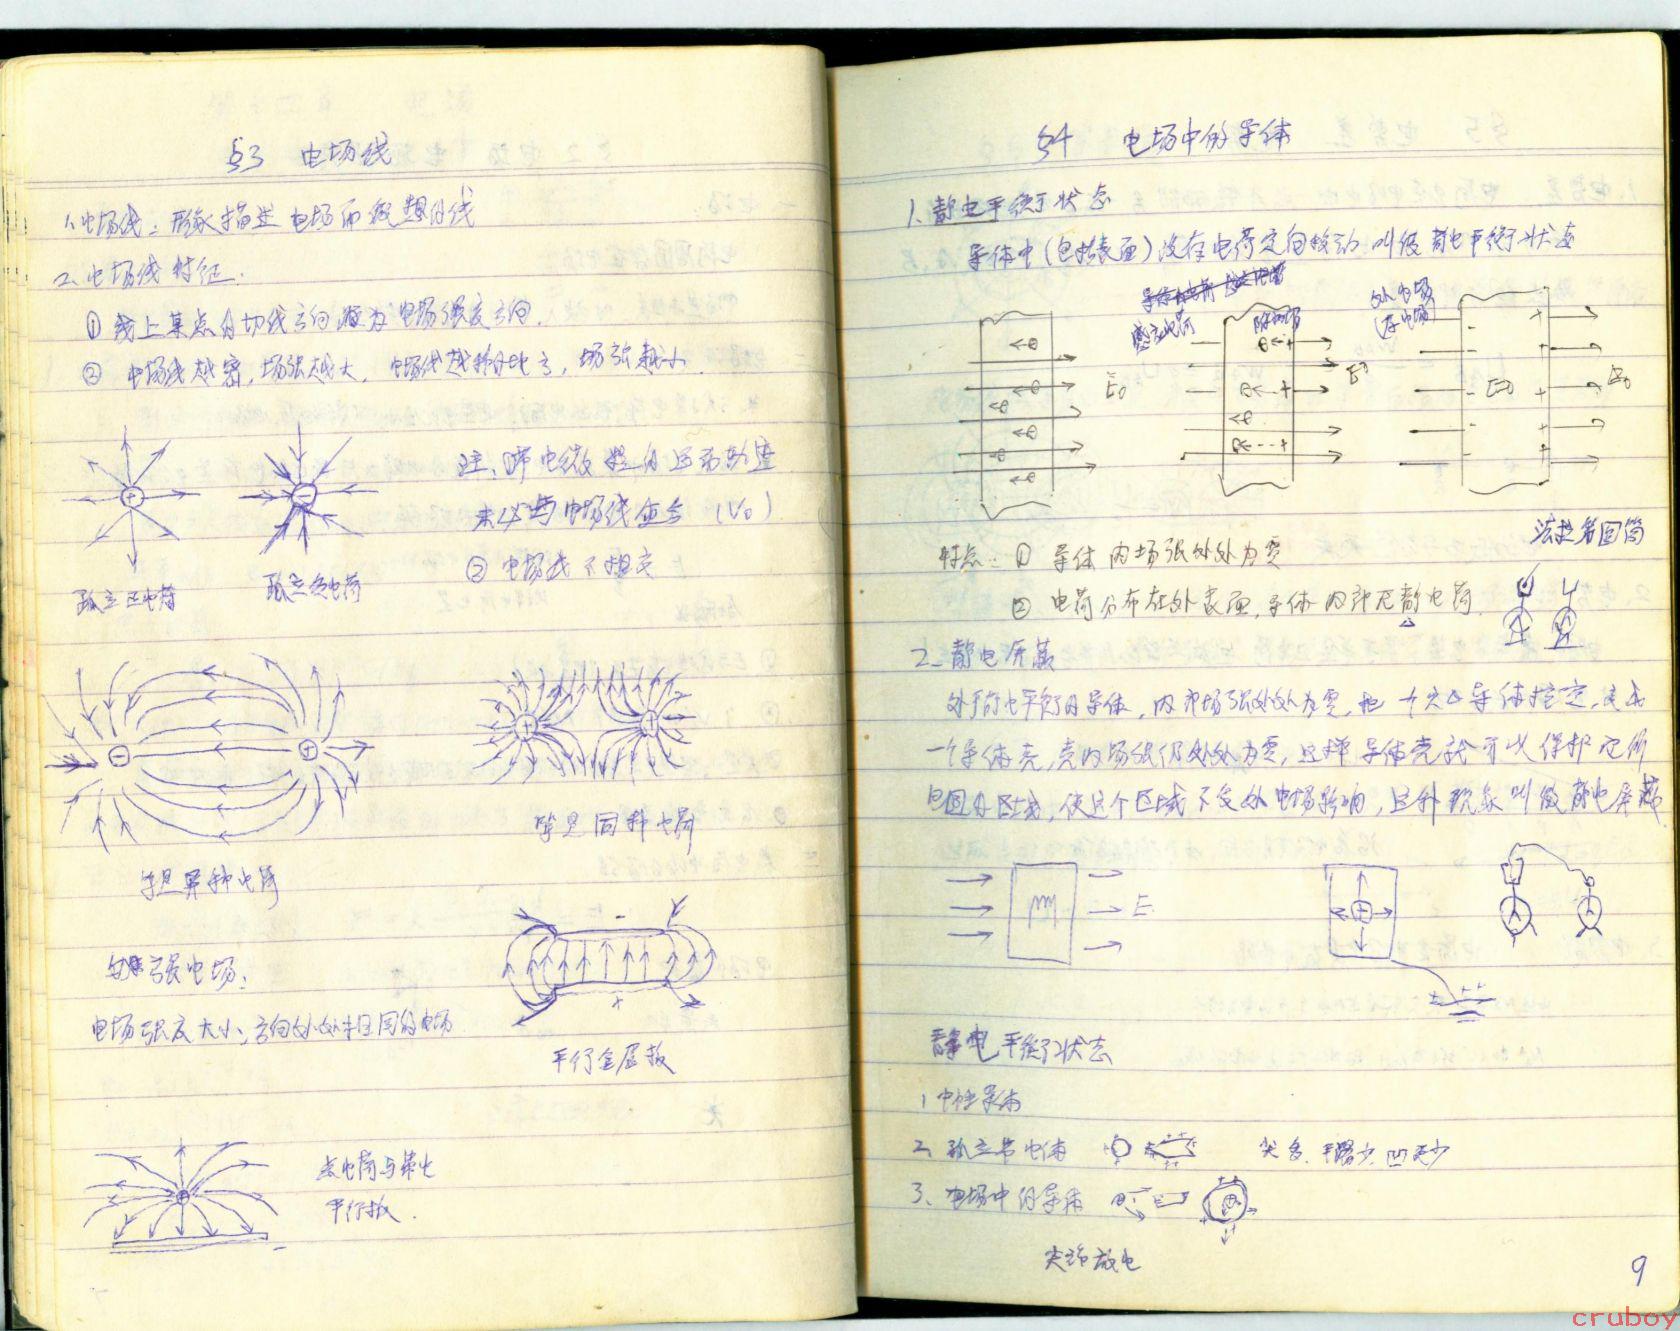 §3 电场线
1.电场线：形象描述电场而假想的线
2.电场线特征：
① 线上某点的切线方向 为电场强度方向.
② 电场线越密,场强越大, 电场线越稀的地方,场强越小.
注：带电微粒的运动轨迹
未必与电场线重合 (V₀)
③ 电场线不相交
孤立正电荷
孤立负电荷
等量异种电荷
等量同种电荷
匀强电场：
电场强度大小、方向处处相同的电场
平行金属板
点电荷与带电
平行板.
§4 电场中的导体
1.静电平衡状态
导体中(包括表面)没有电荷定向移动.叫做静电平衡状态
感应电荷
附加场
外电场
(原电场)
E₀
E₀
E₀
E₀
法拉第圆筒
特点：① 导体内场强处处为零
② 电荷分布在外表面,导体内部无静电荷.
2.静电屏蔽
处于静电平衡的导体,内部场强处处为零,把 导体挖空,变成
一个导体壳,壳内场强仍处处为零,这样导体壳就可以保护它所
包围的区域,使这个区域不受外电场影响,这种现象叫做静电屏蔽.
E
静电平衡状态
1 中性导体
2、孤立带电体 尖多,平 少,凹 少
3、电场中的导体
尖端放电
9
cruboy